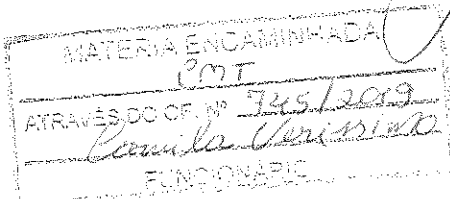 MATERIA ENCAMINHADA
CMT
ATRAVÉS DO OF. Nº 745/2009
Camila Verissimo
FUNCIONARIO